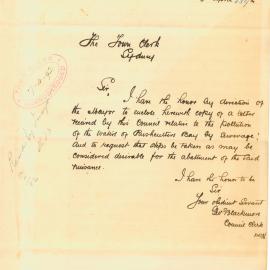 The Town Clerk
Sydney
Sir,
I have the honor by direction of
the Mayor to enclose herewith copy of a letter
received by this Council relative to the Pollution
of the Waters of Rushcutters Bay by Sewerage;
and to request that steps be taken as may be
considered desirable for the abatement of the said
nuisance.
I have the honor to be
Sir
Your obedient Servant
Council Clerk